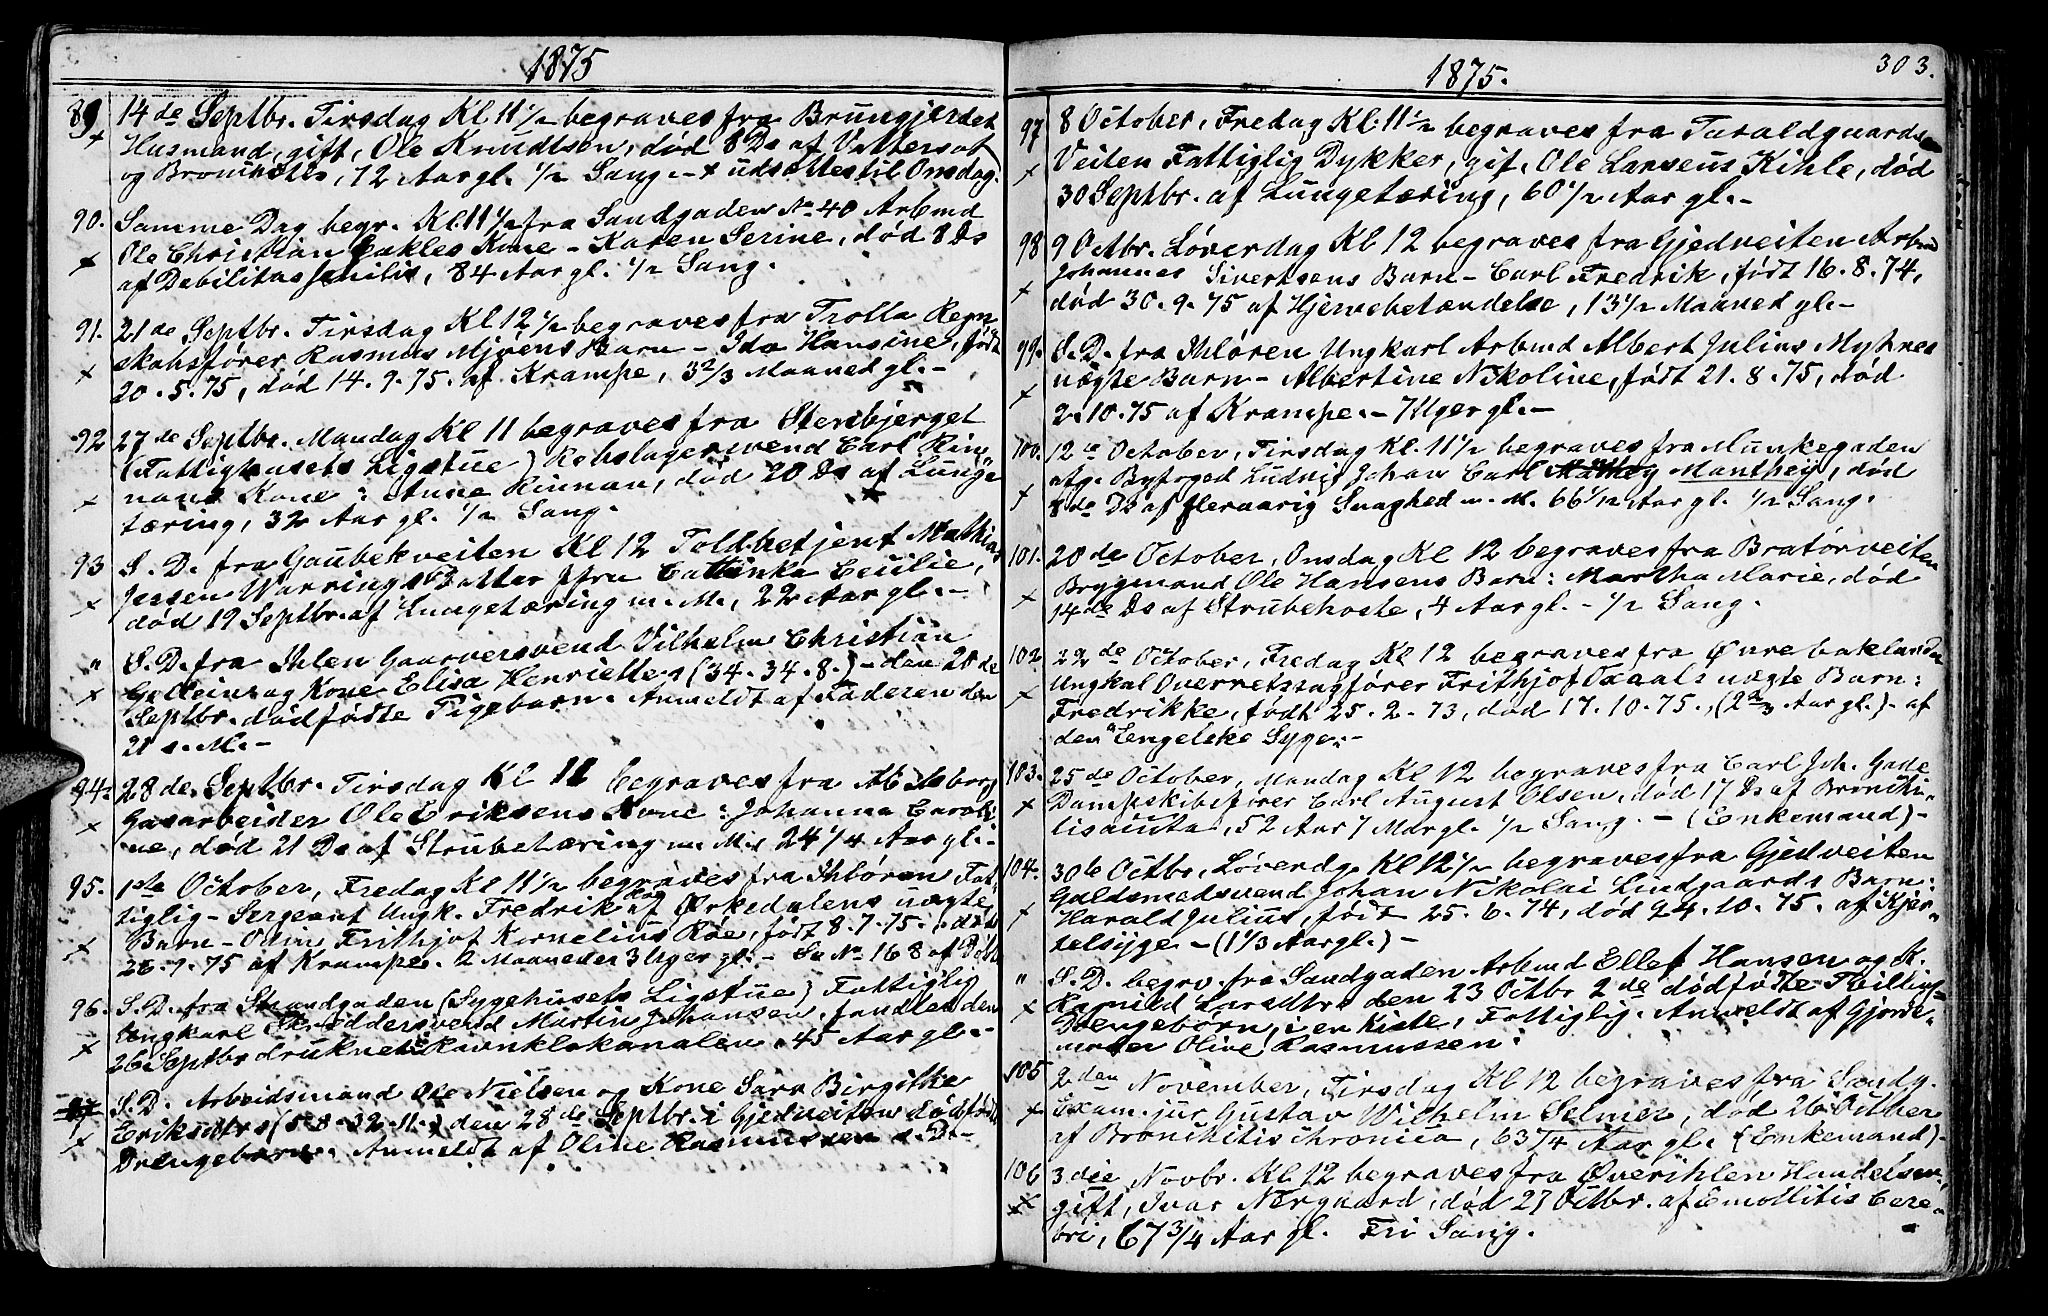 1875
89 14de Septbr. Tirsdag Kl 11 1/2 begraves fra Brungjerdet
Husmand, gift, Ole Knudtsen, død 8 Ds af Vattersot
og Bronchitis, 72 Aar gl. 1/2 Sang. - x udsættes til Onsdag.
90. Samme Dag begr. Kl. 11 1/2 fra Sandgaden No 40 Arbmd
x Ole Christian Kone - Karen Serine, død 8 Ds
af Debilitas senilis, 84 Aar gl. 1/2 Sang.
91. 21de Septbr. Tirsdag Kl 12 1/2 begraves fra Trolla Regn
skabsfører Rasmus Mjøens Barn - Ida Hansine, født
x 20.5.75, død 14.9.75. af Krampe, 3 2/3 Maaned gl. -
92 27de Septbr. Mandag Kl 11 begraves fra Stenbjerget
(Fattighusets Ligstue) Rebslagersvend Carl Rin-
x nans Kone: Anne Rinnan, død 20 Ds af Lunge
tæring, 32 Aar gl. 1/2 Sang.
93 S.D. fra Gaubekveiten Kl 12 Toldbetjent Mathias
x Jensen Warrings Datter Jfru Cattinka Cecilie,
død 19 Septbr. af Lungetæring m. M., 22 Aar gl. -
" S.D. fra Ihlen Garversvend Vilhelm Christian
x og Kone Elisa Henriette (34.34.8.) - den 20de
Septbr. dødfødte Pigebarn. Anmeldt af Faderen den
21 s. M. -
94. 28de Septbr. Tirsdag Kl 11 begraves fra
x Gasarbeider Ole Eriksens Kone: Johanna Caroli
ne, død 21 Ds af Strubetæring m. M. 24 1/4 Aar gl. -
95. 1ste October, Fredag Kl 11 1/2 begraves fra Ihløren Fat-
tiglig - Sergeant Ungk. Fredrik Røe af Ørkedalens uægte
x Barn - Odin Frithjof Kornelius Røe, født 8.7.75. død
26.9.75 af Krampe. 2 Maaneder 3 Uger gl. - Se No 168 af Døbte
96. S.D. fra Strandgaden (Sygehusets Ligstue) Fattiglig
x Ungkarl Møddersvend Martin Johansen, funden den
26 Septbr druknet i Ravnklokanalen, 45 Aar gl. -
S.D. Arbeidsmand Ole Nielsen og Kone Sara Birgitte
x Eriksdtrs (58.32.11.) den 28de Septbr. i Gjedveiten dødfødt
Drengebarn. Anmeldt af Oline Rasmussen s. D. -
303.
1875.
97 8 October, Fredag Kl. 11 1/2 begraves fra Taraldgaards
x Veiten Fattiglig Dykker, gif. Ole Larsens Kihle, død
30 Septbr. af Lungetæring, 60 1/2 Aar gl. -
98 9 Octbr. Løverdag Kl 12 begraves fra Gjedveiten Arbmd
Johannes Sivertsens Barn - Carl Fredrik, født 16.8.74,
x død 30.9.75 af Hjernebetændelse, 13 1/2 Maaned gl. -
99. S.D. fra Ihløren Ungkarl Arbmd Albert Julius Myhres
x uægte Barn - Albertine Nikoline, født 21.8.75, død
2.10.75 af Krampe. - 7 Uger gl. -
100. 12te October, Tirsdag Kl. 11 1/2 begraves fra Munkegaden
x afg. Byfoged Ludvig Johan Carl Manthey, død
8de Ds af fleraarig Svaghed m. M. 66 1/12 Aar gl. 1/2 Sang.
101. 20de October, Onsdag Kl 12 begraves fra Bratørveiten
x Brygmand Ole Hansens Barn: Martha Marie, død
14de Ds af Strubehoste, 4 Aar gl. - 1/2 Sang.
102 22de October, Fredag Kl 12 begraves fra Øvre baklandet
x Ungkal Overretssagfører Frithjof uægte Barn:
Fredrikke, født 25.2.73, død 17.10.75., (2 2/3 Aar gl.) - af
den Engelske Syge. -
103. 25de October, Mandag Kl 12 begraves fra Carl Joh. Gade
x Dampskibsfører Carl August Olsen, død 17 Ds af Bronchi-
tis acuta, 52 Aar 7 Mdr gl. 1/2 Sang. - (Enkemand) -
104. 30te Octbr, Løverdg. Kl 12 1/2 begraves fra Gjedveiten
Guldsmedsvend Johan Nikolai Lindgaards Barn:
x Harald Julius, født 25.6.74, død 24.10.75. af Kjer-
telsyge - (1 1/3 Aar gl.) -
" S.D. begrv. fra Sandgaden Arbmd Ellef Hansen og K.
x Ragnild Larsdtrs den 23 Octbr 2de dødfødte Tvilling-
Drengebørn, i en Kiste, Fattiglig. Anmeldt af Gjorde-
moder Olive Rasmussen.
105 2den November, Tirsdag Kl 12 begraves fra Sandg.
x Exam. jur. Gustav Wilhelm Selmer, død 26 Octber
af Bronchitis chronica, 63 3/4 Aar gl. (Enkemand) -
106 3die Novbr. Kl 12 begraves fra Øvreihlen Handelsm.
x gift, Ivar Nærgaard, død 27 Octbr. af Emollitis Cere-
bri, 67 3/4 Aar gl. Fri Sang.